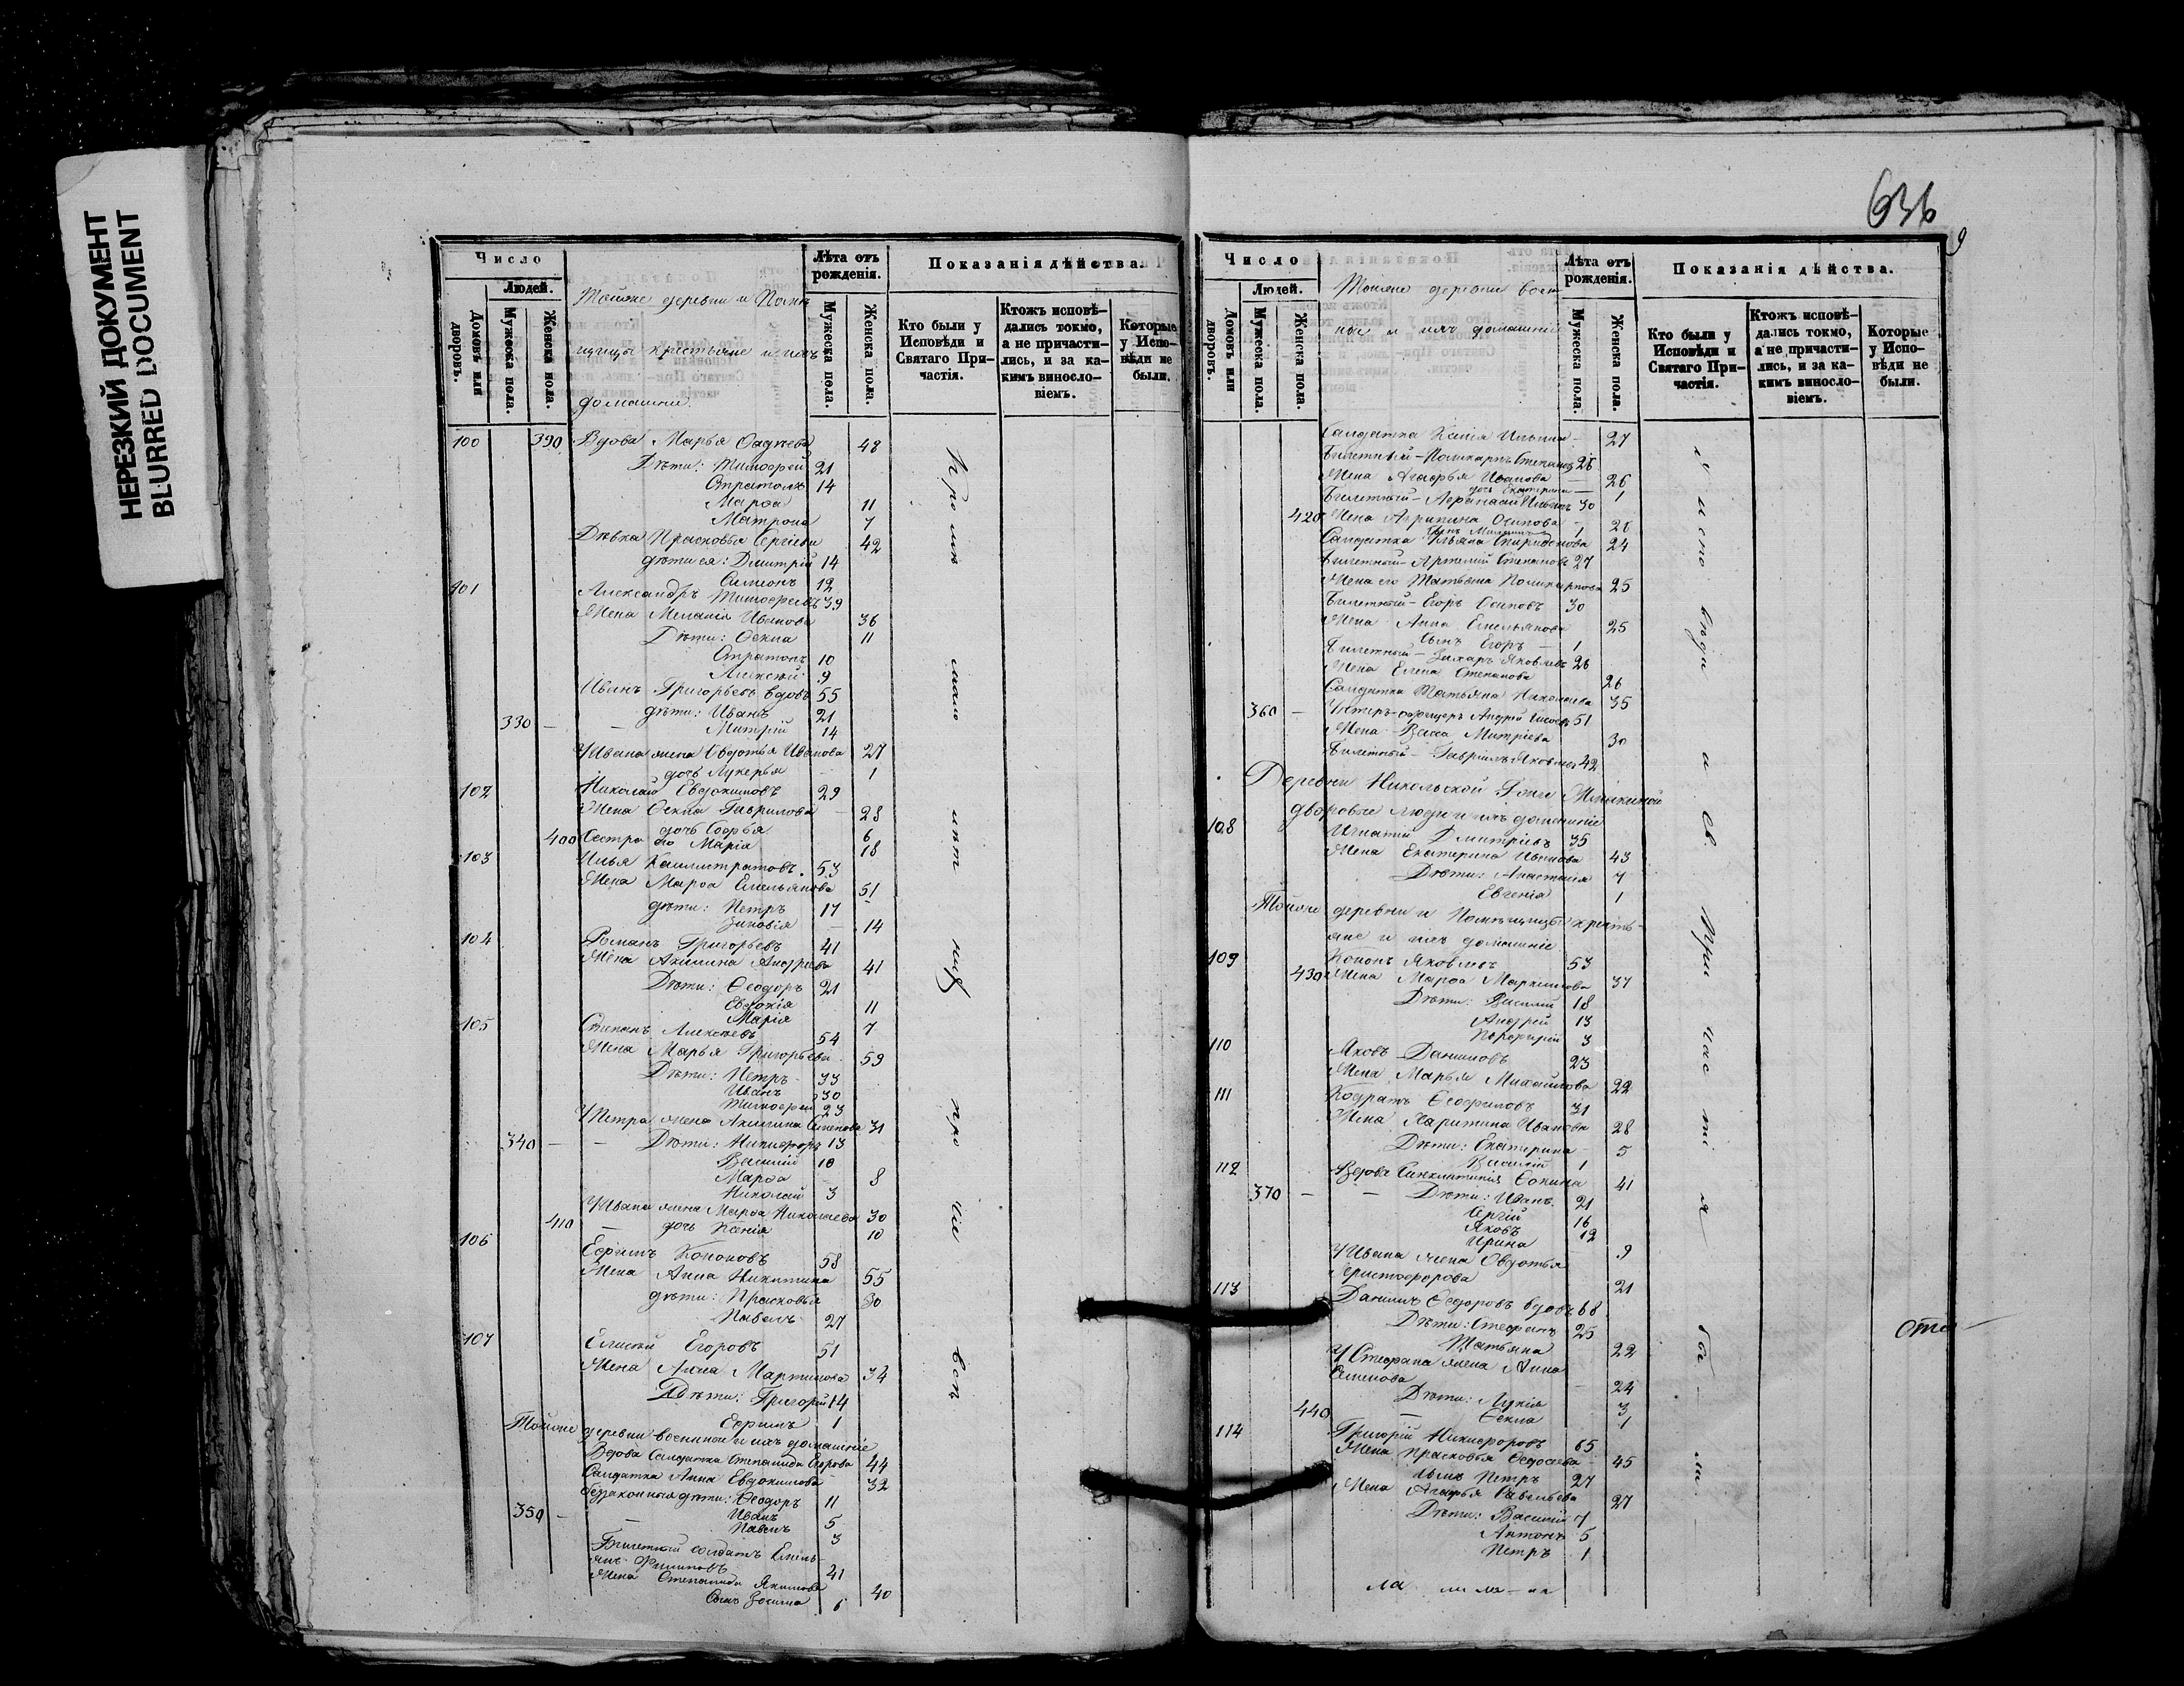 НЕРЕЗКИЙ ДОКУМЕНТ
BLURRED DOCUMENT
Число
Людей.
Домовъ или дворовъ.
Мужеска пола.
Женска пола.
Тойже деревни и Помѣ
щицы крестьяне и ихъ
домашніи
Лѣта отъ рожденія.
Мужеска пола.
Женска пола.
Показанія дѣйства.
Кто были у Исповѣди и Святаго Причастія.
Ктожъ исповѣдались токмо, а не причастились, и за какимъ винословіемъ.
Которые у Исповѣди не были.
100 390 Вдова Марья Ѳадѣева 48
Дѣти: Тимоѳей 21
Стратонъ 14
Марѳа 11
Матрона 7
Дѣвка Прасковья Сергіева 42
дѣти ея: Дмитрій 14
Симеонъ 12
101 Александръ Тимоѳеевъ 39
Жена Меланія Иванова 36
Дѣти: Ѳекла 11
Стратонъ 10
Алексѣй 9
Иванъ Григорьевъ вдовъ 55
дѣти: Иванъ 21
330 — — Митрій 14
У Ивана жена Овдотья Иванова 27
дочь Лукерья 1
102 Николай Евдокимовъ 29
Жена Ѳекла Гаврилова 28
дочь Софья 6
400 Сестра его Марія 18
103 Илья Каллистратовъ 53
Жена Марѳа Емельянова 51
дѣти: Петръ 17
Зиновія 14
104 Романъ Григорьевъ 41
Жена Акилина Андреева 41
Дѣти: Ѳеодоръ 21
Евдокія 11
Марія 7
105 Степанъ Алексѣевъ 54
Жена Марья Григорьева 59
Дѣти: Петръ 33
Иванъ 30
Тимоѳей 23
У Петра жена Акилина Семенова 31
340 — — Дѣти: Никифоръ 13
Василій 10
Марѳа 8
Николай 3
У Ивана жена Марѳа Николаева 30
410 — дочь Ксенія 10
106 Ефимъ Кононовъ 58
Жена Анна Никитина 55
дѣти: Прасковья 30
Павелъ 27
107 Елисѣй Егоровъ 51
Жена Анна Мартинова 34
Дѣти: Григорій 14
Ефимъ 1
Тойже деревни военные и ихъ домашніе
Вдова Салдатка Степанида Егорова 44
Салдатка Анна Евдокимова 32
беззаконныя дѣти: Ѳеодоръ 11
350 — — Иванъ 5
Павелъ 3
Билетный солдатъ Емель
янъ Филиповъ 41
Жена Степанида Якимова 40
Сынъ Зосима 6
636
9
Число
Людей.
Домовъ или дворовъ.
Мужеска пола.
Женска пола.
Тойже деревни воен
ные и ихъ домашніе
Лѣта отъ рожденія.
Мужеска пола.
Женска пола.
Показанія дѣйства.
Кто были у Исповѣди и Святаго Причастія.
Ктожъ исповѣдались токмо, а не причастились, и за какимъ винословіемъ.
Которые у Исповѣди не были.
Салдатка Ксенія Ильина 27
Билетный - Поликарпъ Степановъ 26
Жена Агафья Иванова 26
дочь Екатерина — 1
Билетный - Афанасій Ильинъ 30
420 Жена Агрипина Осипова 26
Сынъ 1
Салдатка Ульяна Спиридонова 24
Билетный - Артемій Степановъ 27
Жена его Татьяна Поликарпова 25
Билетный - Егоръ Осиповъ 30
Жена Анна Емельянова 25
Сынъ Егоръ — 1
Билетный - Захаръ Яковлевъ 26
Жена Елена Степанова 26
Салдатка Татьяна Николаева 35
360 — Унтеръ-офицеръ Андрей 51
Жена Васса Митріева 30
Билетный - Гавріилъ Яковлевъ 42
Деревни Никольской Г-жи
дворовые люди и ихъ домашніе
108 Игнатій Дмитріевъ 35
Жена Екатерина Иванова 43
Дѣти: Анастасія 7
Евгенія 1
Тойже деревни и Помѣщицы крестья-
яне и ихъ домашніе
109 Кононъ Яковлевъ 53
430 Жена Марѳа Маркинова 37
Дѣти: Василій 18
Андрей 13
Порфирій 3
110 Яковъ Даниловъ 23
Жена Марья Михайлова 22
111 Кодратъ Ѳеофиловъ 31
Жена Харитина Иванова 28
Дѣти: Екатерина 5
Василій 1
112 Вдова Синклитикія Ѳокина 41
370 — — Дѣти: Иванъ 21
Сергій 16
Яковъ 12
Ирина 9
У Ивана жена Овдотья
Христофорова 21
113 Даниилъ Ѳедоровъ вдовъ 68
Дѣти: Стефанъ 25
Татьяна 22
У Стефана жена Анна
Семенова 24
Дѣти: Лукія 3
440 — Ѳекла 1
114 Григорій Никифоровъ 65
Жена Прасковья Ѳедосеева 45
Сынъ Петръ 27
Жена Агафья Савельева 27
Дѣти: Василій 7
Антонъ 5
Петръ 1